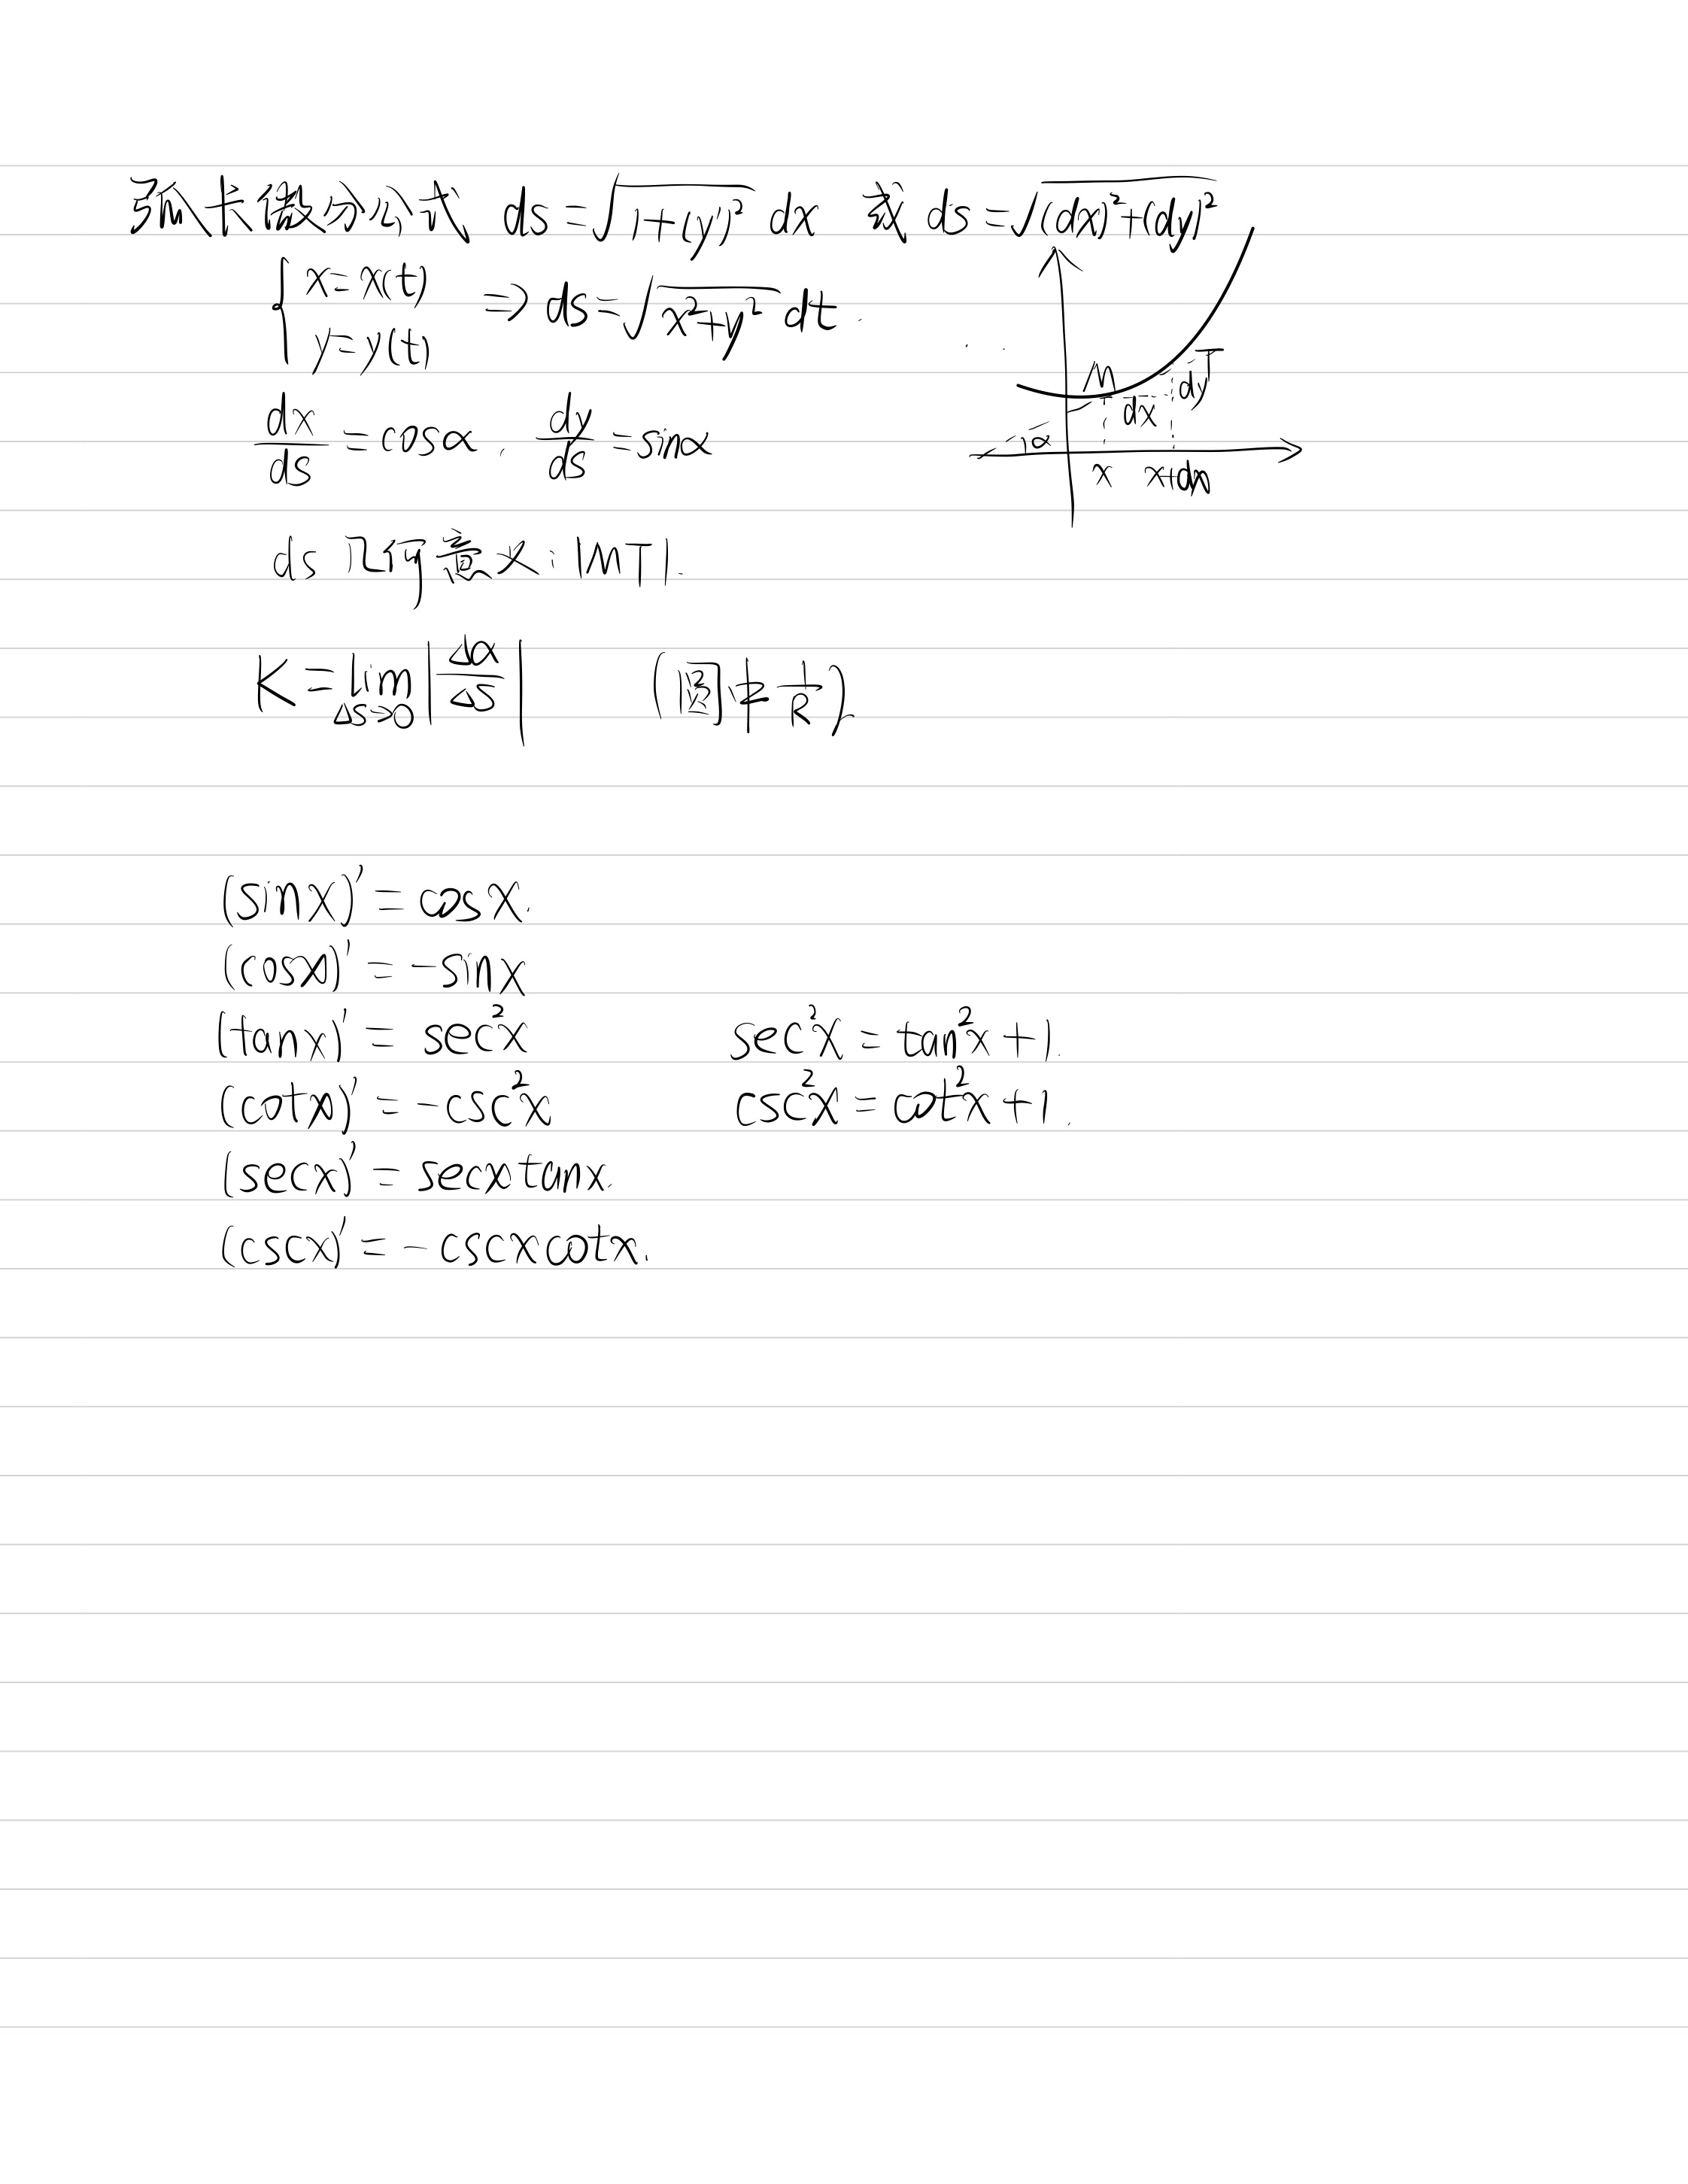 弧长微分公式 ds=√(1+(y')²) dx 或 ds=√((dx)²+(dy)²)
{ x=x(t) y=y(t) ⇒ ds=√(x²+y²) dt.
dx/ds=cosα, dy/ds=sinα
M T dy dx α x x+dx
ds 几何意义:|MT|.
K=lim Δs→0 |Δα/Δs| (圆中 1/R)
(sinx)'=cosx.
(cosx)'=-sinx
(tanx)'=sec²x sec²x=tan²x+1.
(cotx)'=-csc²x csc²x=cot²x+1.
(secx)'=secxtanx.
(cscx)'=-cscxcotx.